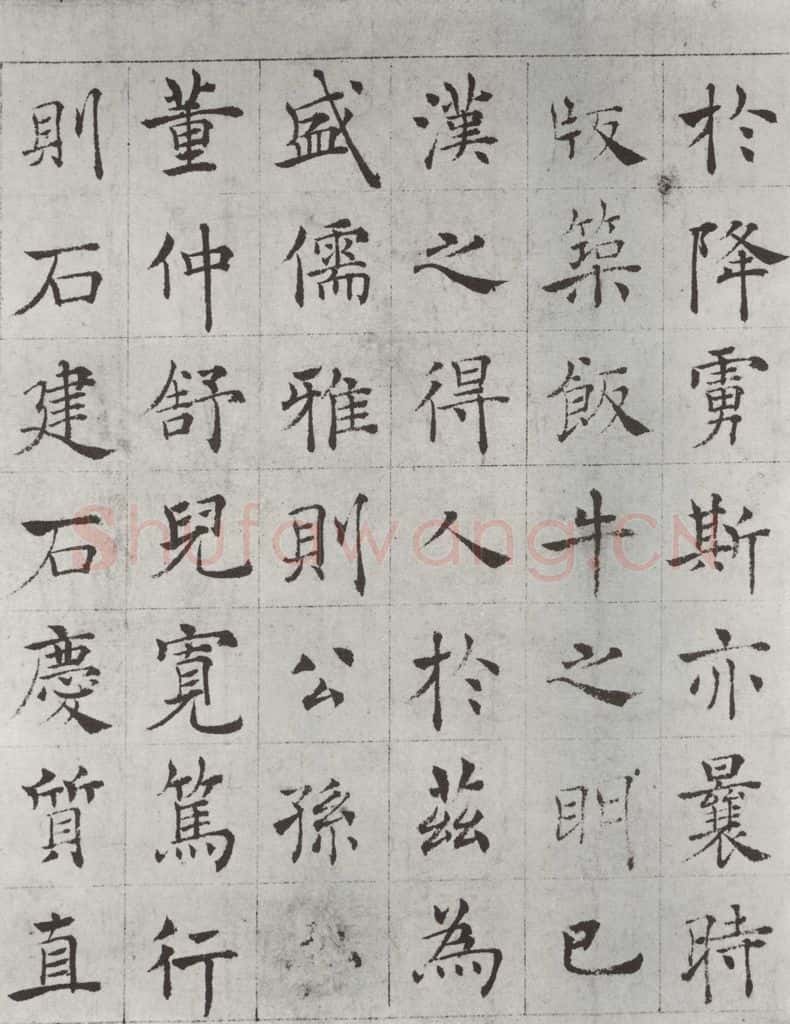 於降虜斯亦曩時
版築飯牛之眀已
漢之得人於茲為
盛儒雅則公孫
董仲舒兒寬篤行
則石建石慶質直
Shufawang.CN